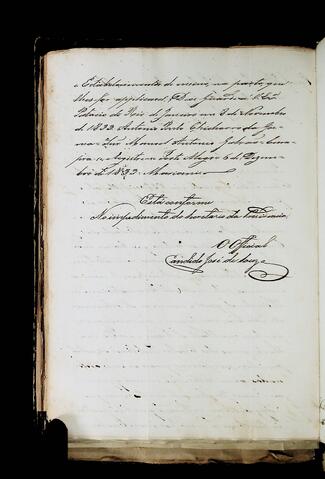 e Estabelecimento do mesmo, na parte que
lhes for applicavel. Deos Guarde a V. Ex.ª
Palacio do Rio de Janeiro em 3 de Novembro
de 1832. Antonio Pinto Chichorro da Ga-
ma. Snr. Manoel Antonio Galvão. Cum-
pra-se, e Registe-se. Porto Alegre 6 de Dezem-
bro de 1832.
Está conforme
No impedimento do Secretario da Provincia
O Official
Candido José de Souza